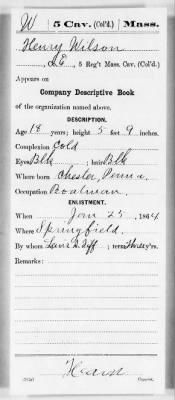 W | 5 Cav. (Col'd.) | Mass.
Henry Wilson
, Co. E, 5 Reg't Mass. Cav. (Col'd.)
Appears on
Company Descriptive Book
of the organization named above.
DESCRIPTION.
Age 18 years; height 5 feet 9 inches.
Complexion Cold
Eyes Blk; hair Blk
Where born Chester, Penna
Occupation Boatman.
ENLISTMENT.
When Jan 25, 1864
Where Springfield.
By whom ; term 3 y'rs.
Remarks:
Copyist.